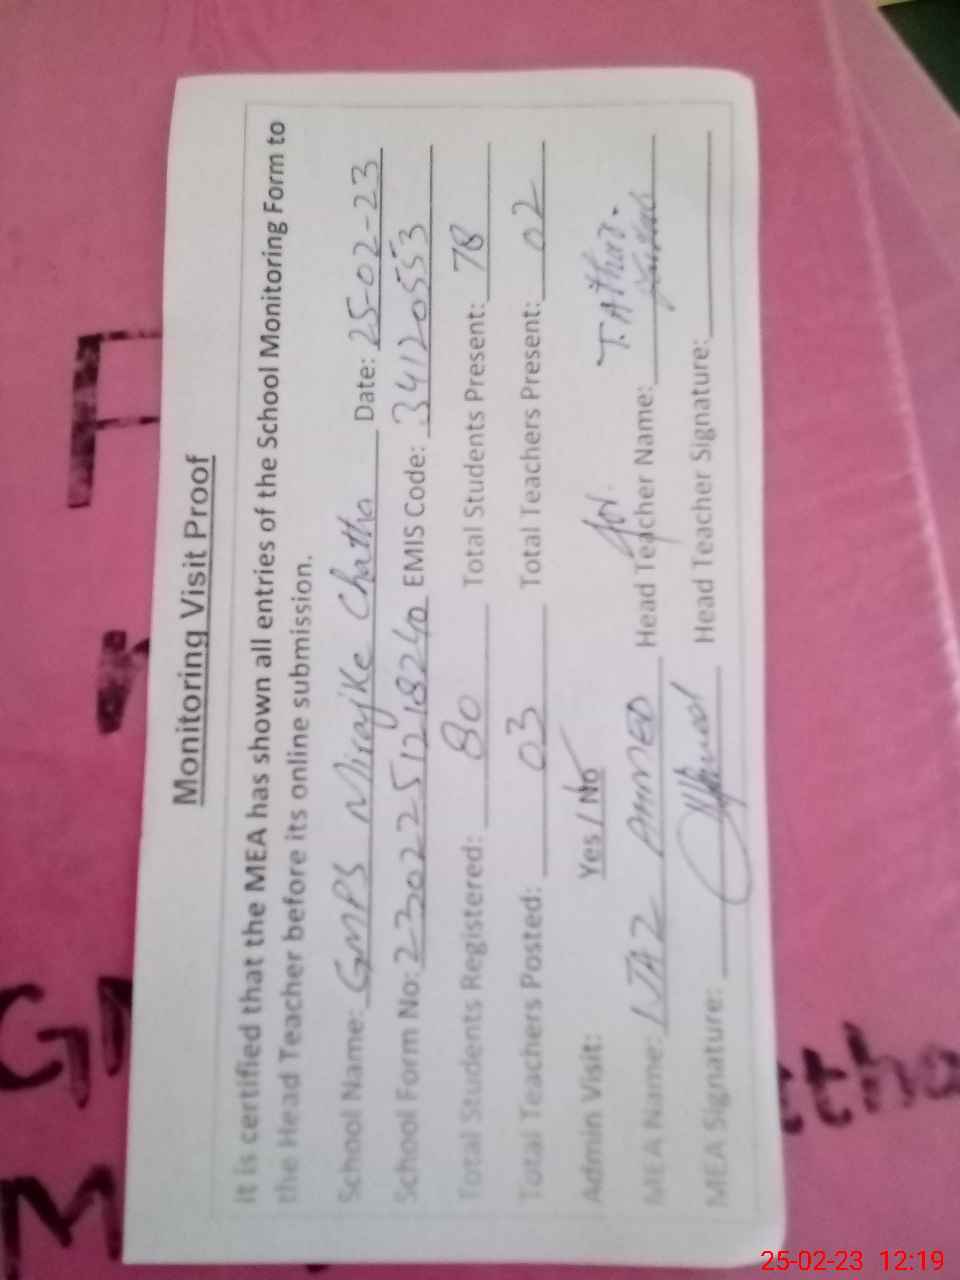 Monitoring Visit Proof
It is certified that the MEA has shown all entries of the School Monitoring Form to
the Head Teacher before its online submission.
School Name: GMPS Mirajke Chatha Date: 25-02-23
School Form No: 230225121824p EMIS Code: 34120553
Total Students Registered: 80 Total Students Present: 78
Total Teachers Posted: 03 Total Teachers Present: 02
Admin Visit: Yes / No
MEA Name: IJAZ AHMED Head Teacher Name: for. T. Athar.
MEA Signature: Head Teacher Signature:
25-02-23 12:19